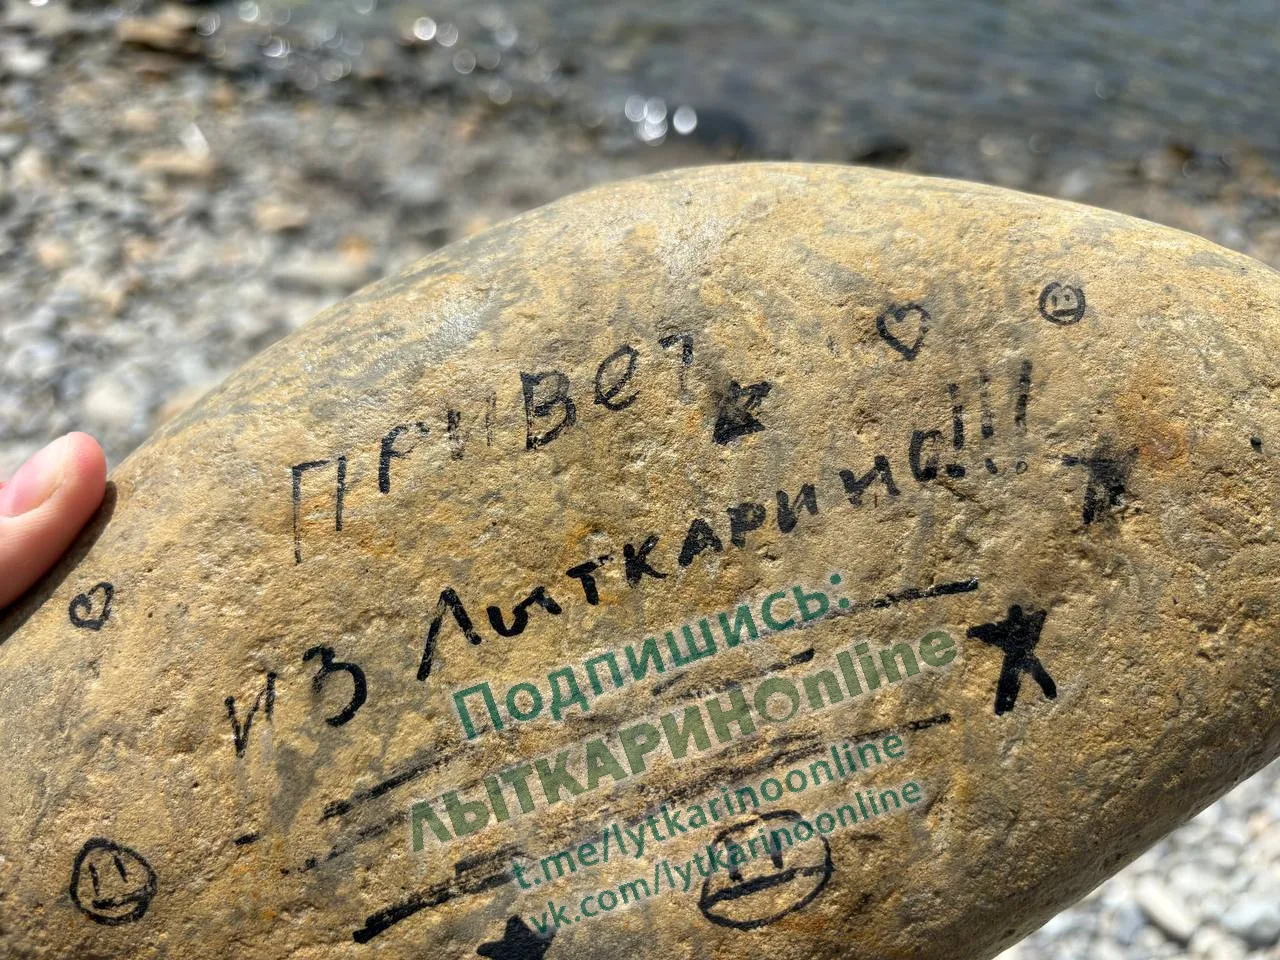 Привет
из Лыткарино!!!
Подпишись:
ЛЫТКАРИНОnline
t.me/lytkarinoonline
vk.com/lytkarinoonline